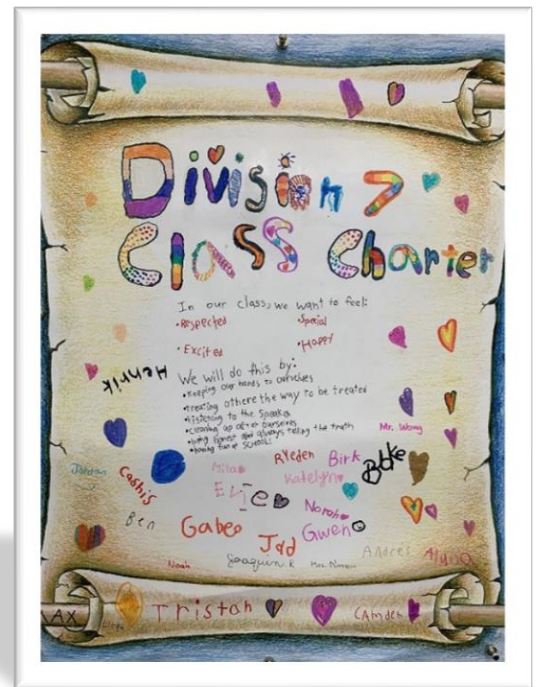 Division 7
Class Charter
In our class, we want to feel:
•Respected •Special
•Excited •Happy
Henrik
We will do this by:
•keeping our hands to ourselves
•treating others the way to be treated
•listening to the speaker
•cleaning up after ourselves
•being honest and always telling the truth
•having fun at school!
Mr. Wong
Jordan
Cashis
Milo
Ryeden
Birk
Blake
Katelyn
Evie
Ben
Norah
Gabe
Gwen
Jad
Andres
Alyssa
Noah
Joaquin.k
Mrs.
AX
Tristan
Camden